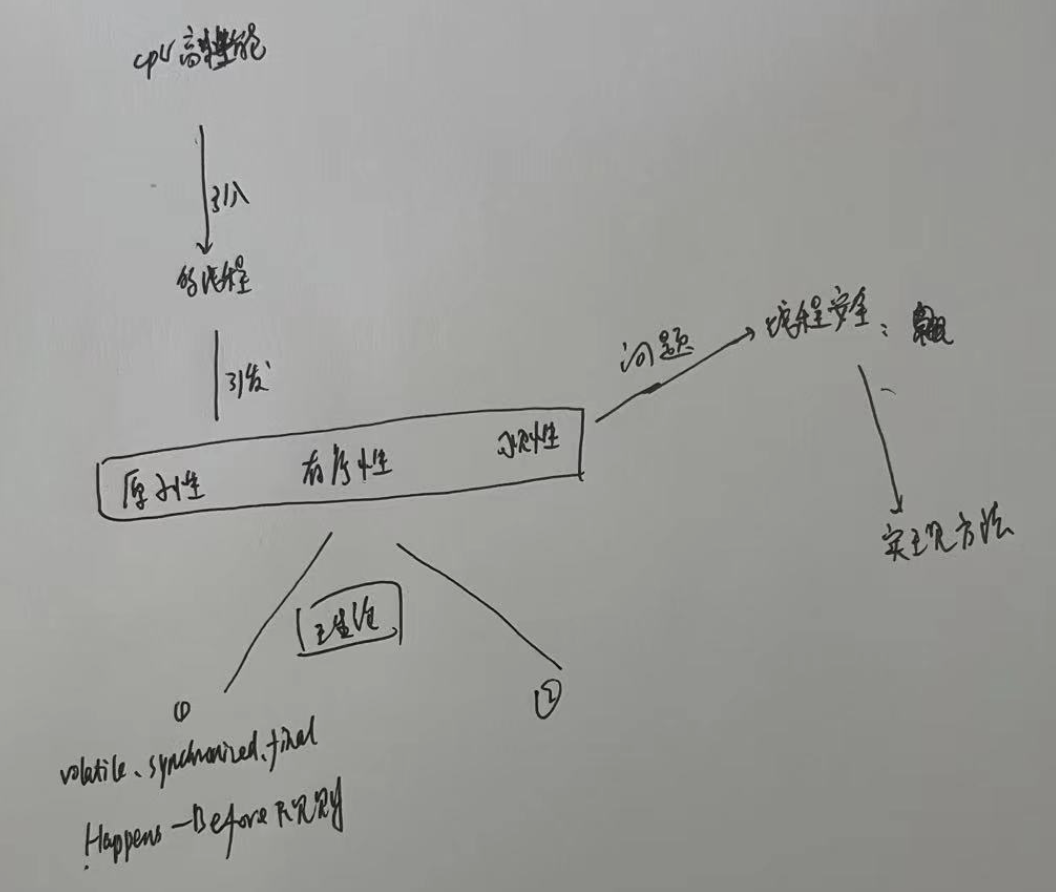 cpu高性能
引入
多线程
引发
问题
线程安全：
原子性 有序性 可见性
实现方法
理论
①
②
volatile、synchronized、final
Happens-Before规则